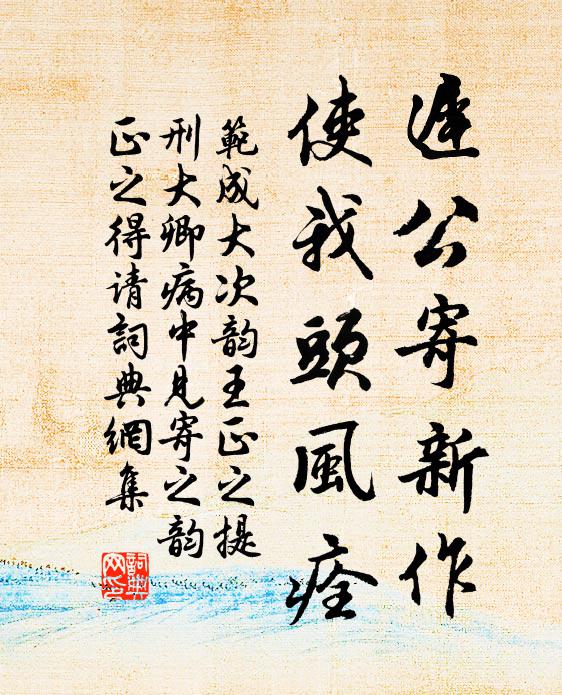 遲公寄新作
使我頭風痊
範成大次韵王正之提
刑大卿病中見寄之韵
正之得请詞典網集